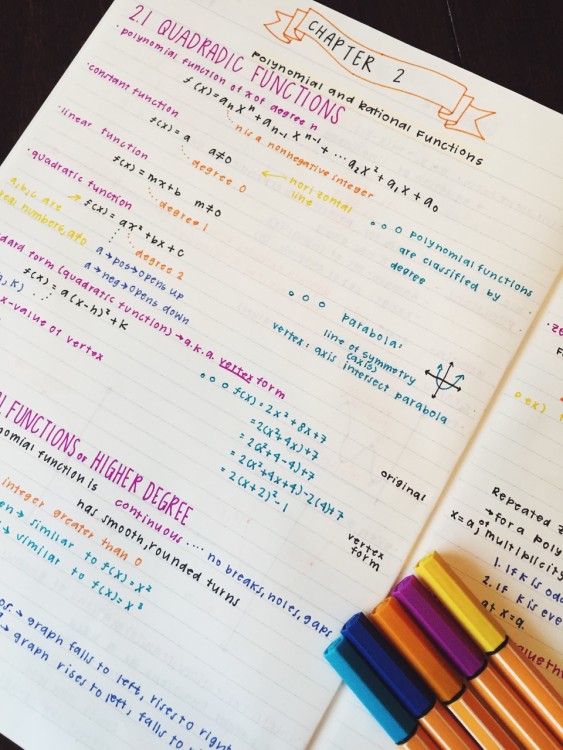 CHAPTER 2
Polynomial and Rational Functions
2.1 QUADRADIC FUNCTIONS
· polynomial function of x of degree n
f(x) = aₙxⁿ + aₙ₋₁xⁿ⁻¹ + ... a₂x² + a₁x + a₀
n is a nonnegative integer
· constant function
f(x) = a a≠0
degree 0
horizontal
line
· linear function
f(x) = mx+b m≠0
degree 1
polynomial functions
are classified by
degree
· quadratic function
f(x) = ax² + bx + c
a, b, c are
real numbers, a≠0
degree 2
a → pos → opens up
a → neg → opens down
form (quadratic function) → a.k.a. vertex form
f(x) = a(x-h)² + k
k)
x-value of vertex
parabola:
line of symmetry
(axis)
vertex: axis intersect parabola
f(x) = 2x² + 8x + 7
= 2(x² + 4x) + 7
= 2(x² + 4 - 4) + 7
= 2(x² + 4x + 4) - 2(4) + 7
= 2(x+2)² - 1
original
vertex
form
FUNCTIONS OF HIGHER DEGREE
function is continuous .... no breaks, holes, gaps
has smooth, rounded turns
integer greater than 0
→ similar to f(x) = x²
→ similar to f(x) = x³
→ graph falls to left, rises to right
→ graph rises to left, falls to
ex)
Repeated
→ for a
x = a, of multiplicity
1. If K is
2. If K is
at x = a.